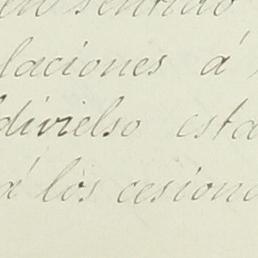 en sentido
laciones á
divielso esta
á los cesiona